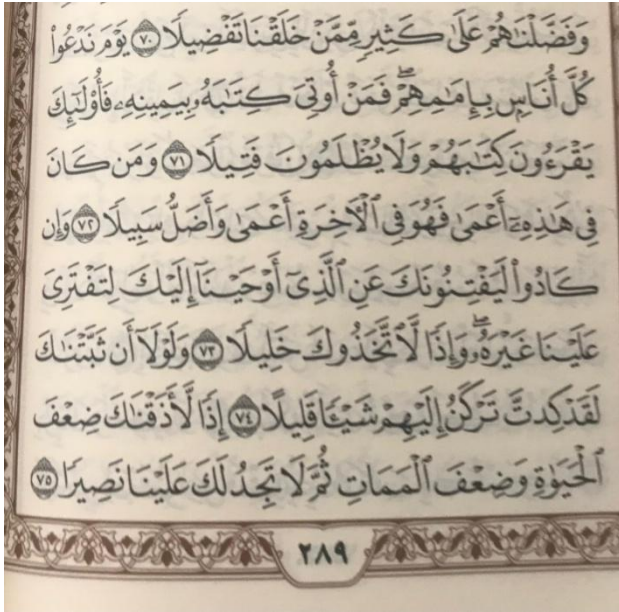 وَفَضَّلْنَٰهُمْ عَلَىٰ كَثِيرٍ مِّمَّنْ خَلَقْنَا تَفْضِيلًا ٧٠ يَوْمَ نَدْعُوا۟
كُلَّ أُنَاسٍۭ بِإِمَٰمِهِمْ ۖ فَمَنْ أُوتِىَ كِتَٰبَهُۥ بِيَمِينِهِۦ فَأُو۟لَٰٓئِكَ
يَقْرَءُونَ كِتَٰبَهُمْ وَلَا يُظْلَمُونَ فَتِيلًا ٧١ وَمَن كَانَ
فِى هَٰذِهِۦٓ أَعْمَىٰ فَهُوَ فِى ٱلْءَاخِرَةِ أَعْمَىٰ وَأَضَلُّ سَبِيلًا ٧٢ وَإِن
كَادُوا۟ لَيَفْتِنُونَكَ عَنِ ٱلَّذِىٓ أَوْحَيْنَآ إِلَيْكَ لِتَفْتَرِىَ
عَلَيْنَا غَيْرَهُۥ ۖ وَإِذًا لَّٱتَّخَذُوكَ خَلِيلًا ٧٣ وَلَوْلَآ أَن ثَبَّتْنَٰكَ
لَقَدْ كِدتَّ تَرْكَنُ إِلَيْهِمْ شَيْـًٔا قَلِيلًا ٧٤ إِذًا لَّأَذَقْنَٰكَ ضِعْفَ
ٱلْحَيَوٰةِ وَضِعْفَ ٱلْمَمَاتِ ثُمَّ لَا تَجِدُ لَكَ عَلَيْنَا نَصِيرًا ٧٥
٢٨٩